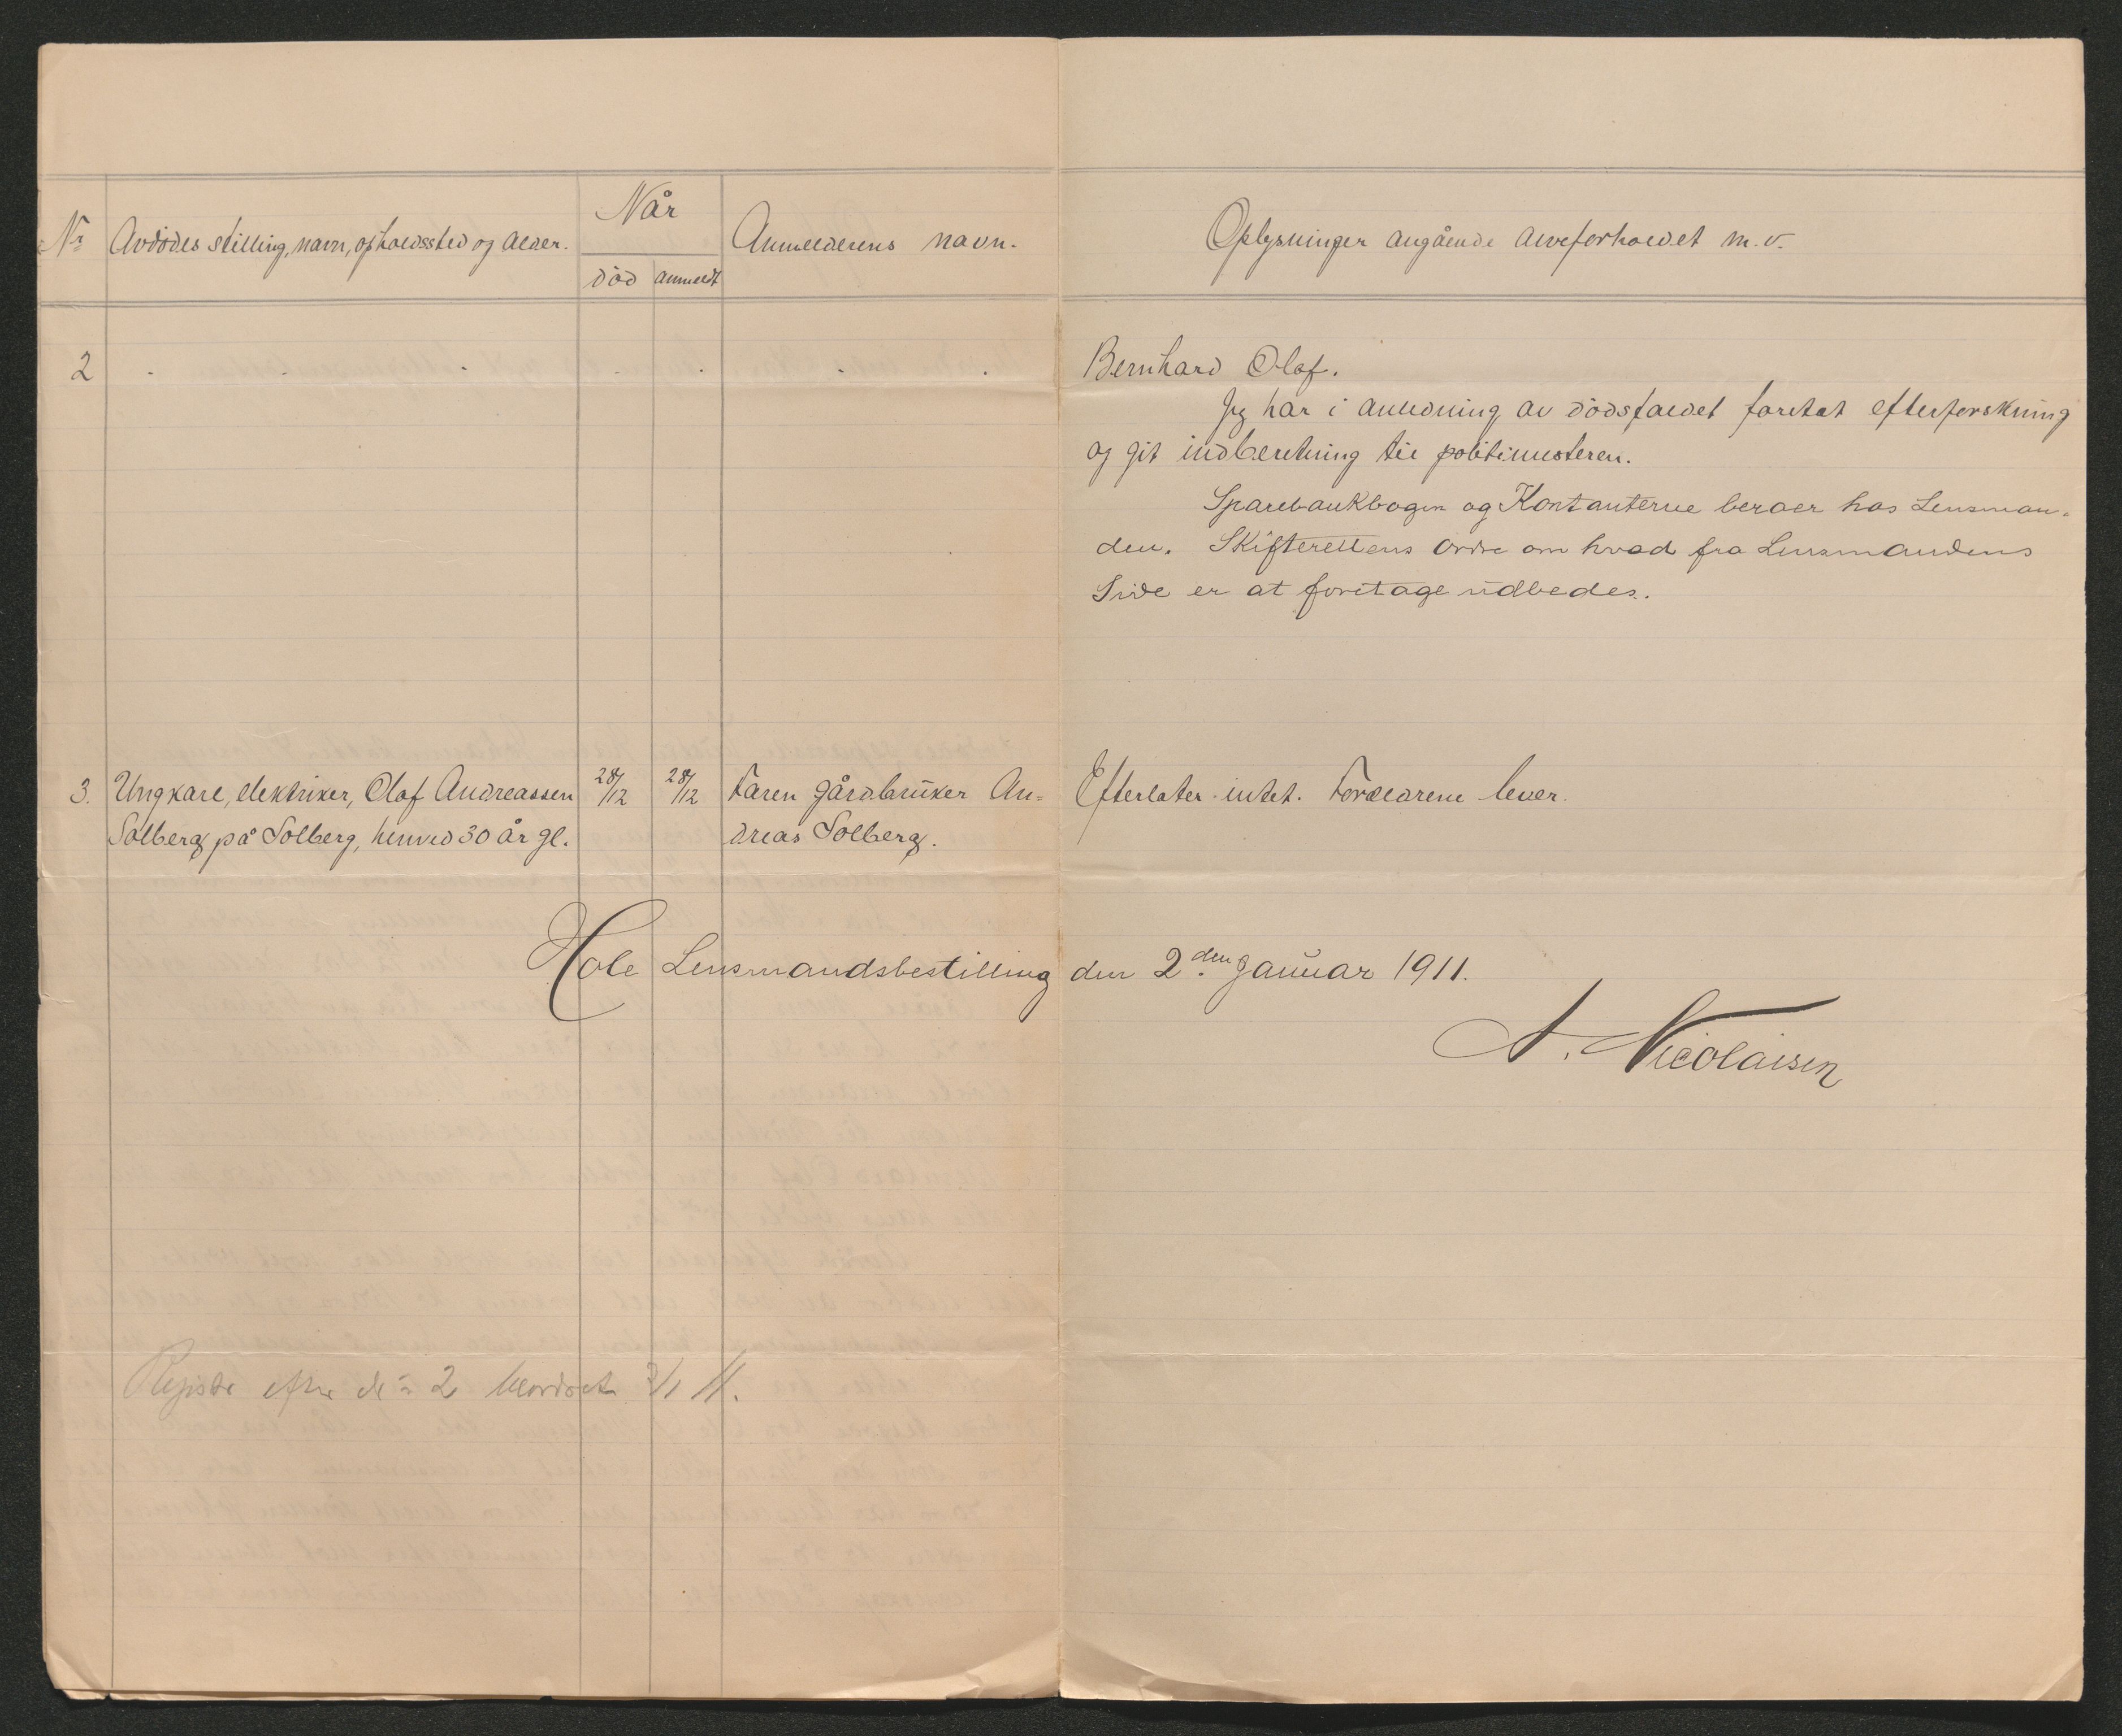 Nr Avdödes stilling, navn, opholdssted og alder. Når Anmelderens navn. Oplysninger angående arveforholdet m.v.
död anmeldt
2 . . . . . . . Bernhard Olaf.
Jeg har i anledning av dödsfaldet foretat efterforskning
og git indberetning til politimesteren.
Sparebankbogen og Kontanterne beroer hos Lensman-
den. Skifterettens Ordre om hvad fra Lensmandens
Side er at foretage udbedes.
3. Ungkarl, elektriker, Olaf Andreassen 28/12 28/12 Faren gårdbruker An= Efterlater intet. Forældrene lever.
Solberg på Solberg, henved 30 år gl. dreas Solberg.
Hole Lensmandsbestilling den 2den Januar 1911.
A. Nicolaisen
efter 2 3/1 11.